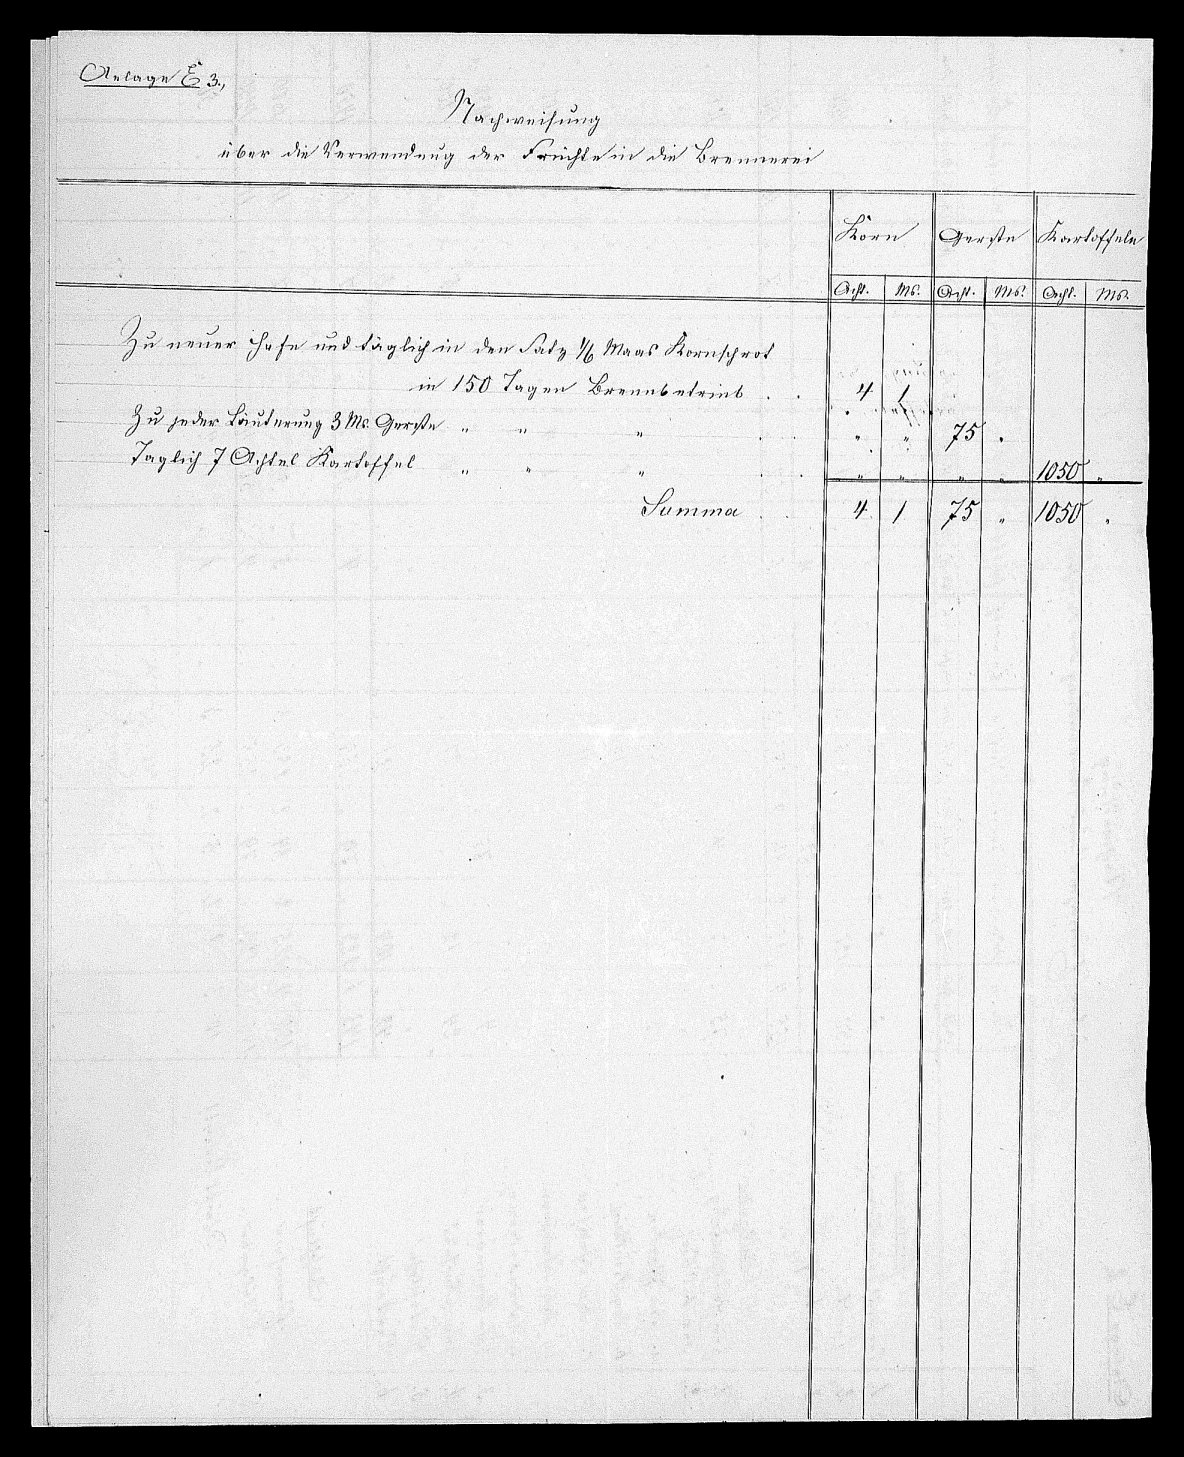 Anlage E 3.,
Nachweisung
über die Verwendung der Früchte in die Brennerei
Korn Gerste Kartoffeln
Acht. Ms. Acht. Ms. Acht. Ms.
Zu neuer Hefe und täglich in den Satz 1/6 Maas Kornschrot
in 150 Tagen Brennbetrieb . . 4 1
Zu jeder Läuterung 3 Ms. Gerste " " " . . " " 75 "
Täglich 7 Achtel Kartoffel " " " . . " " " " 1050 "
Summa . . 4 1 75 " 1050 "